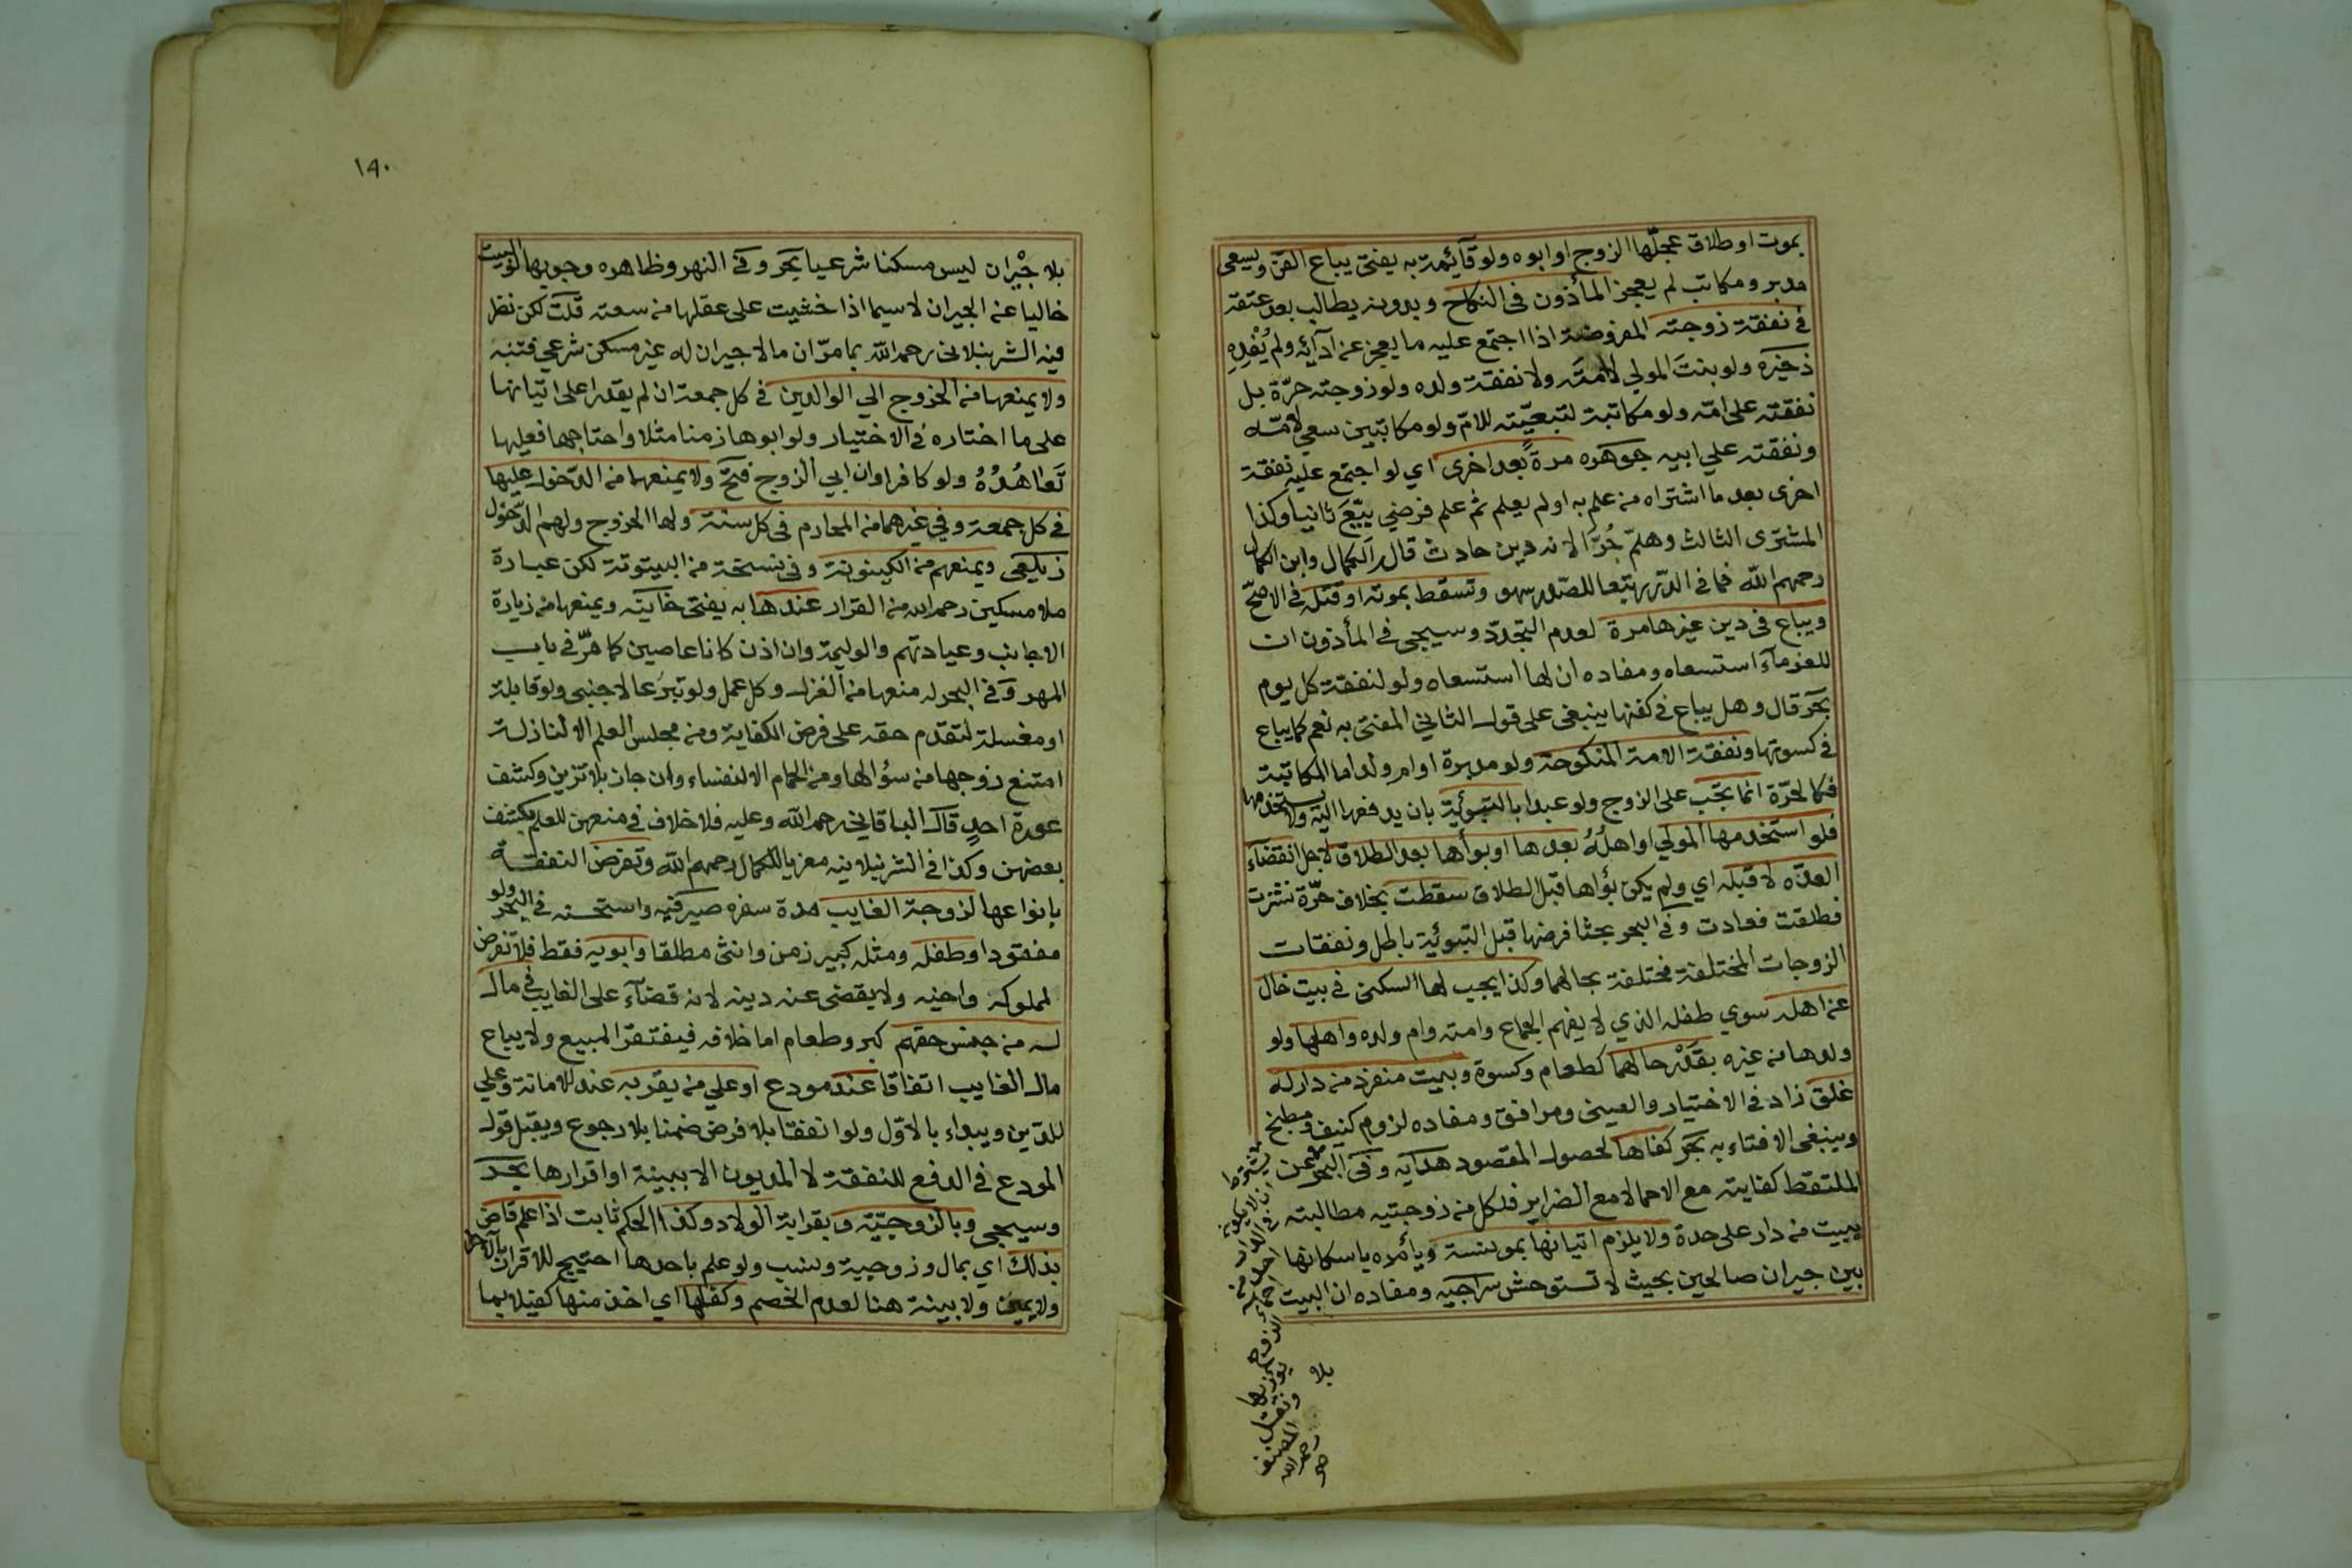 بموت او طلاق عجلّها الزوج او ابوه ولو قآئمة به يفتى يباع القن ويسعى
مدبر ومكاتب لم يعجز المأذون فى النكاح وبدونه يطالب بعد عتقه
في نفقة زوجته المفروضة اذا اجتمع عليه ما يعجز عن ادآئه ولم يُفْدِهِ
ذخيرة ولو بنت المولي لا امته ولا نفقة ولده ولو زوجته حرّة بل
نفقته على امّه ولو مكاتبة لتبعيّته للامّ ولو مكاتبين سعي لامّه
ونفقته علي ابيه جوهره مرةً بعد اخرى اي لو اجتمع عليه نفقة
اخرى بعد ما اشتراه من علم به او لم يعلم ثم علم فرضي بِيْعَ ثانيا وكذا
المشترى الثالث وهلمّ جُرّا لانه دين حادث قال الكمال وابن الكمال
رحمهم الله فما في الدّرر تبعا للصّدر سهو وتسقط بموته او قتله في الاصحّ
ويباع فى دين غيرها مرة لعدم التجدّد وسيجى في المأذون ان
للغرمآء استسعاه ومفاده ان لها استسعاه ولو لنفقة كل يوم
بحر قال وهل يباع في كفنها ينبغى على قول الثاني المفتى به نعم كما يباع
في كسوتها ونفقة الامة المنكوحة ولو مدبرة او ام ولد اما المكاتبة
فكالحرّة انما تجب على الزوج ولو عبدا بالتبوئية بان يدفعها اليه ولا يستخدمها
فلو استخدمها المولي او اهلُهُ بعدها او بوأها بعد الطلاق لاجل انقضآء
العدّه لا قبله اي ولم يكن بوٌاها قبل الطلاق سقطت بخلاف حرّة نشزت
فطلقت فعادت وفي البحر بحثا فرضها قبل التبوئية باطل ونفقات
الزوجات المختلفة مختلفة بحالهما وكذا يجب لها السكنى في بيت خال
عن اهله سوي طفله الذي لا يفهم الجماع وامته وام ولده واهلها ولو
ولدها من غيره بقدْر حالهما كطعام وكسوة وبيت منفرد من دار له
غلق زاد في الاختيار والعينى ومرافق ومفاده لزوم كنيف ومطبخ
وينبغى الافتاء به بحر كفاها لحصول المقصود هدايه وفى البحر عن
الملتقط كفايته مع الاحما لا مع الضراير فلكل من زوجتيه مطالبته
ببيت من دار على حدة ولا يلزم اتيانها بمونسة ويأمره باسكانها
بين جيران صالحين بحيث لا تستوحش سراجيه ومفاده ان البيت
بلا
١٩٠
بلا جيْران ليس مسكنا شرعيا بحر وفي النهر وظاهره وجوبها لو البيت
خاليا عن الجيران لا سيما اذا خشيت على عقلها من سعته قلت لكن نظر
فيه الشرنبلالى رحمه الله بما مرّ ان ما لا جيران له غير مسكن شرعي فتنبه
ولا يمنعها من الخروج الي الوالدين في كل جمعة ان لم يقدرا على اتيانها
على ما اختاره في الاختيار ولو ابوها زمنا مثلا واحتاجها فعليها
تَعاهُدُهُ ولو كافرا وان ابي الزوج فتح ولا يمنعهما من الدّخول عليها
في كل جمعة وفي غيرهما من المحارم فى كل سنة ولها الخروج ولهم الدّخول
زيلعي ويمنعهم من الكينونة وفي نسخة من البيتوتة لكن عبارة
ملا مسكين رحمه الله من القرار عندها به يفتى خانيّه ويمنعها من زيارة
الاجانب وعيادتهم والوليمة وان اذن كانا عاصين كما مرّ في باب
المهر وفي البحر له منعها من الغزل وكل عمل ولو تبرعا لاجنبي ولو قابلة
او مغسلة لتقدم حقه على فرض الكفاية ومن مجلس العلم الا لنازلة
امتنع زوجها من سؤالها ومن الحمام الا لنفساء وان جاز بلا تزين وكشف
عورة احدٍ قال الباقاني رحمه الله وعليه فلا خلاف في منعهن للعلم بكشف
بعضهن وكذا في الشرنبلاليه معزيا للكمال رحمهم الله وتفرض النفقة
بانواعها لزوجة الغايب مدة سفره صيرفيه واستحسنه في البحر ولو
مفقودا وطفله ومثله كبير زمن وانثى مطلقا وابويه فقط فلا تفرض
لمملوكه واخيه ولا يقضى عنه دينه لانه قضآء على الغايب في مال
له من جنس حقهم كبر وطعام اما خلافه فيفتقر للبيع ولا يباع
مال الغايب اتفاقا عند مودع او علي من يقر به عند للامانة وعلي
للدّين ويبداء بالاوّل ولو انفقا بلا فرض ضمنا بلا رجوع ويقبل قول
المودع في الدفع للنفقة لا المديون الا ببينة او اقرارها بحر
وسيجى وبالزوجيّة وبقرابة الولاد وكذا الحكم ثابت اذا علم قاض
بذلك اي بمال وزوجية ونسب ولو علم باحدها احتيج للاقرار بالآخر
ولا يمين ولا بينة هنا لعدم الخصم وكفلها اي اخذ منها كفيلا بما